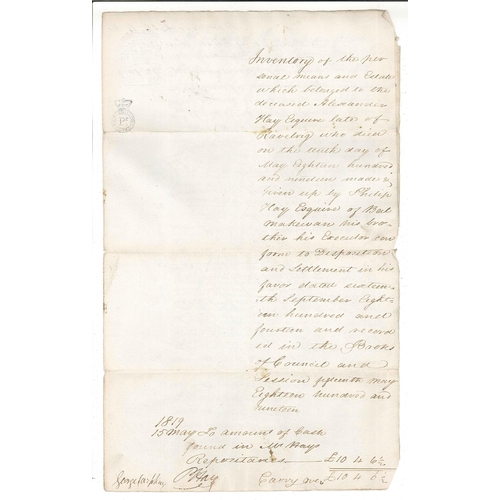 Inventory of the per
sonal means and Estate
which belonged to the
deceased Alexander
Hay Esquire late of
who died
on the tenth day of
May Eighteen hundred
and nineteen made &
Given up by Philip
Hay Esquire of
his bro
ther his Executor con
form to Disposition
and Settlement in his
favor dated sixteen
th September Eight
een hundred and
fourteen and record
ed in the Books
of Council and
Session fifteenth may
Eighteen hundred and
nineteen
1819
15 May To amount of Cash
found in Mr Hays
Repositories £10 4 6½
P Hay Carry over £10 4 6½